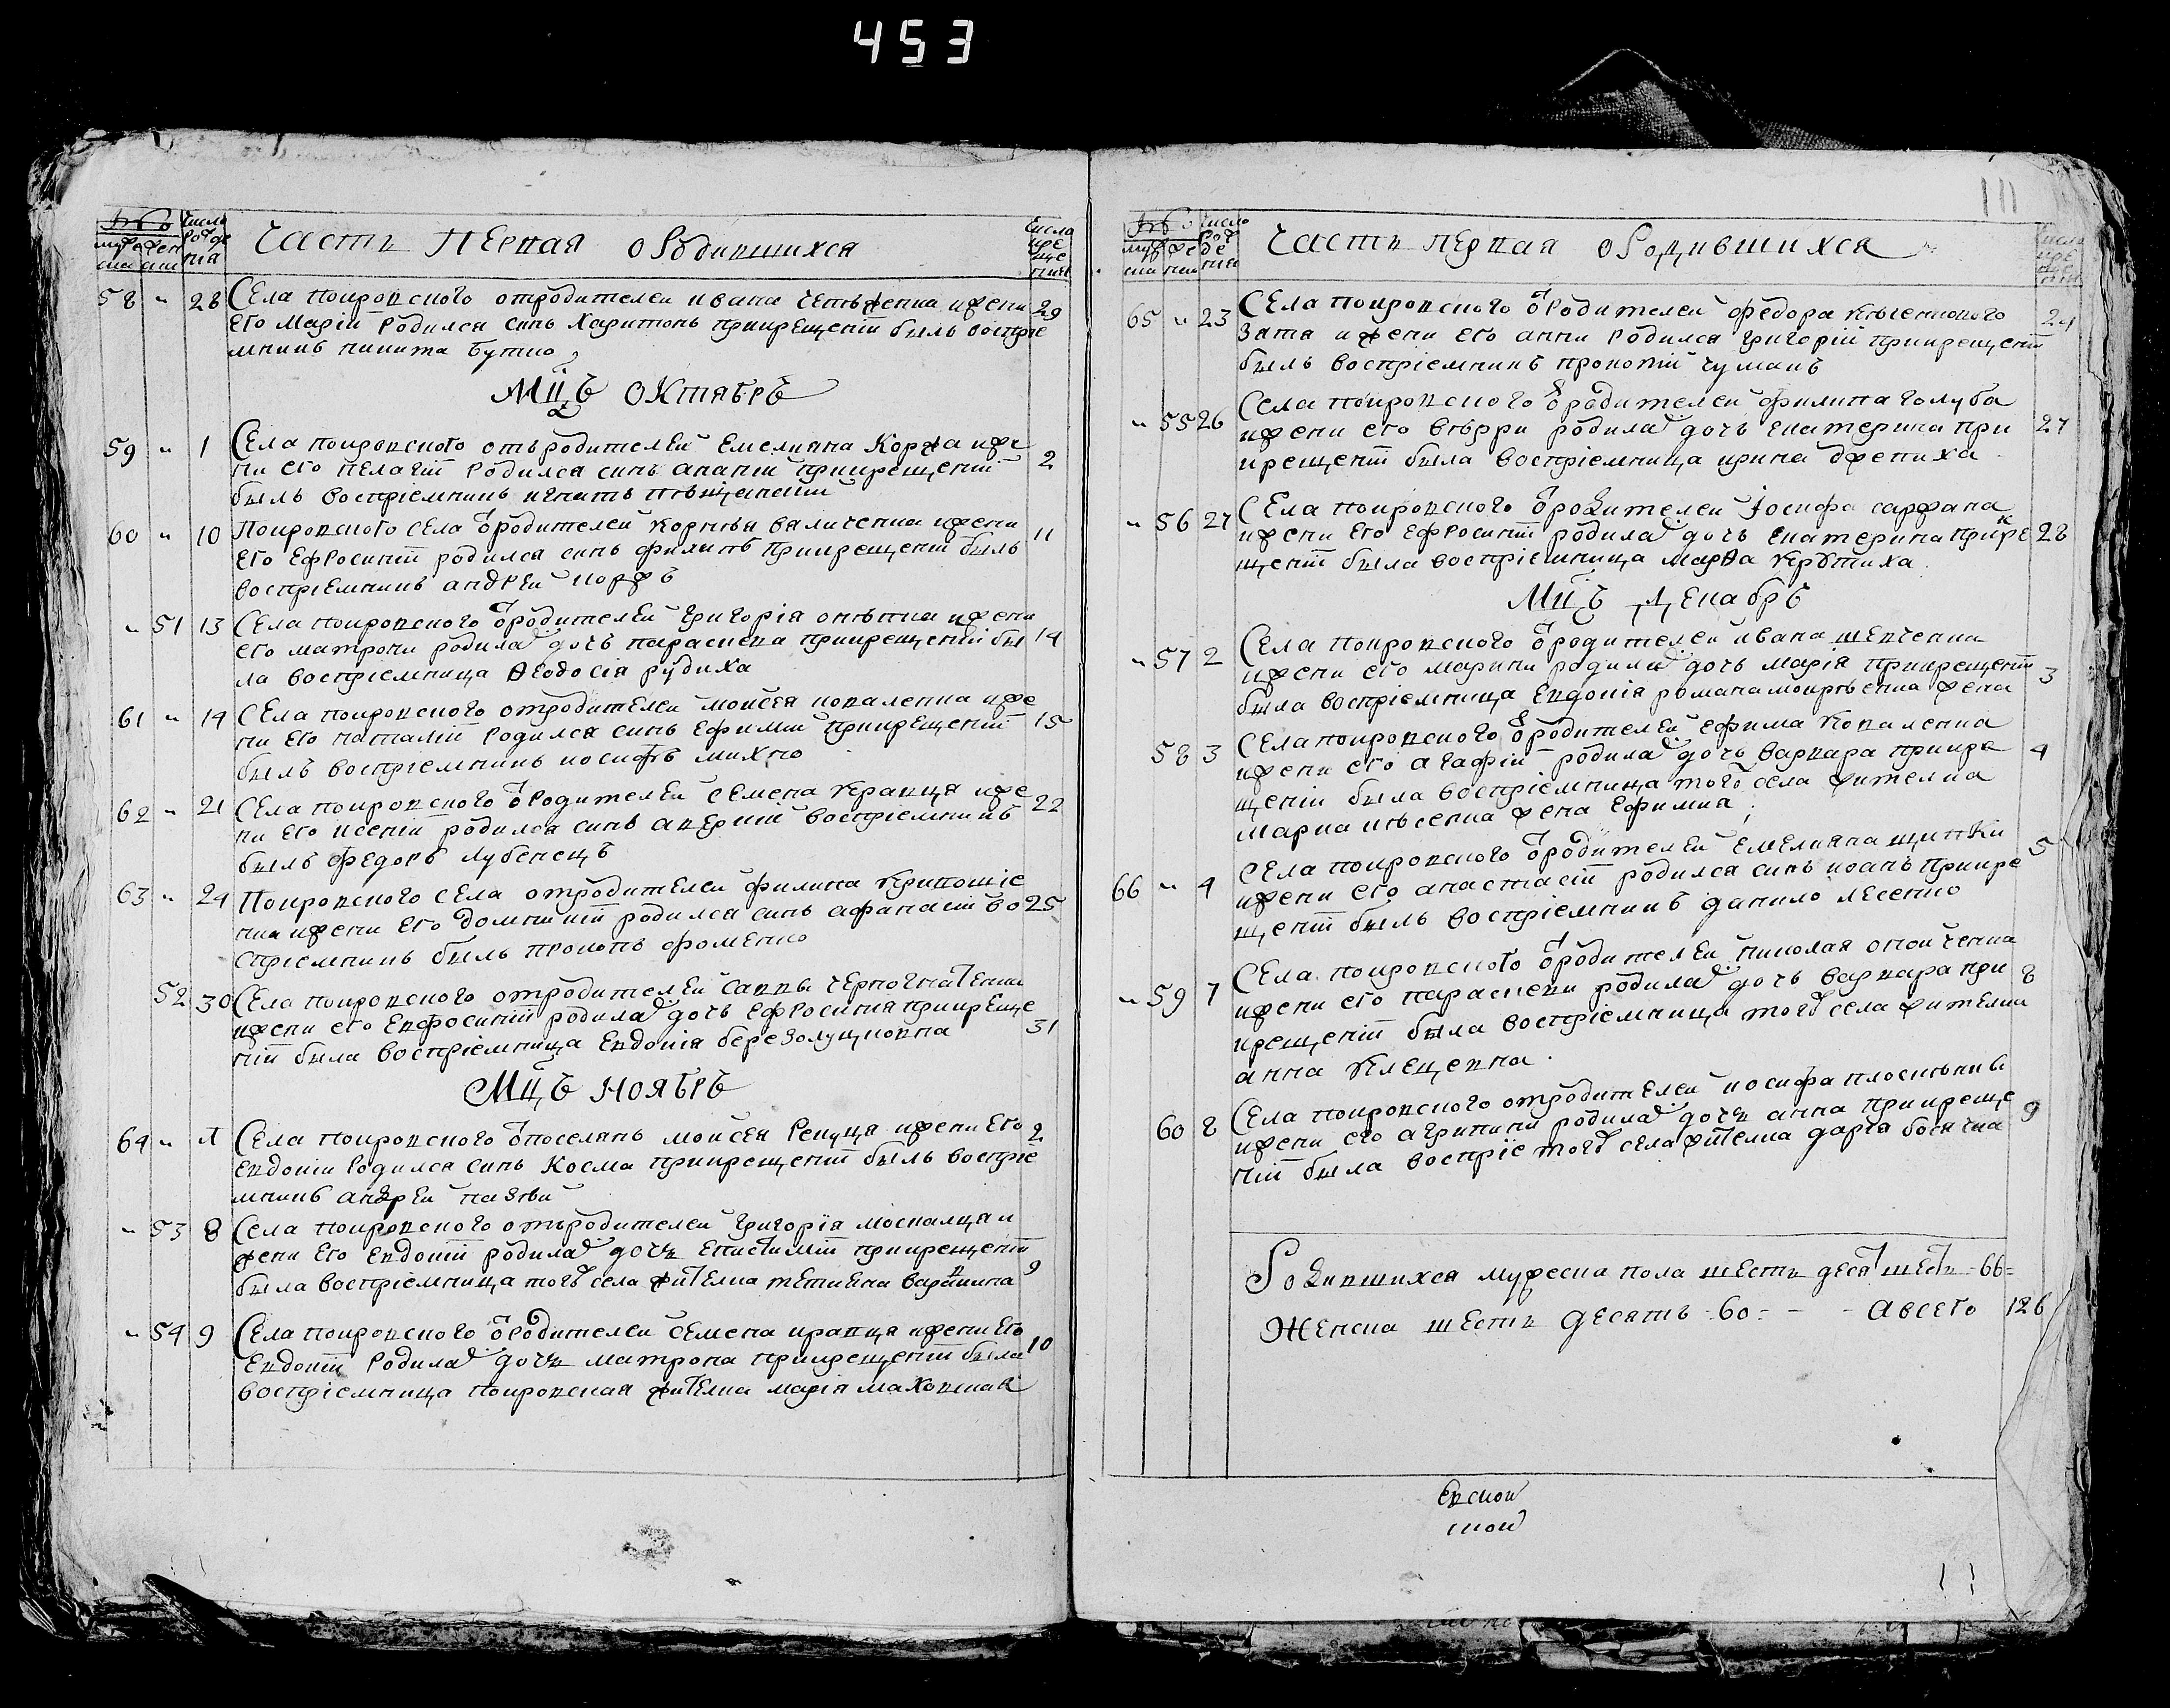 453
111
№
число рожде нія
муже ска женс ки
Часть Первая о Родившихся
Числа кре ще нія
58 " 28 Села покровского отродителей ивана
его Маріи Родился синъ Харитонъ прикрещеніи былъ воспріе 29
мникъ никита Бутко
Мцъ Октябръ
59 " 1 Села покровского отъродителей Емелияна Коржа ижє
ни его пелагіи Родился синъ ананіи прикрещеніи 2
былъ воспріемникъ игнатъ
60 " 10 Покровского Села ѿродителей корнія величенка ижени 11
его Ефросиніи родился синъ филипъ прикрещеніи былъ
воспріемникъ андрей коржъ
" 51 13 Села покровского ѿродителей григорія ижени
его матрони родиласъ дочъ параскева прикрещеніи бы 14
ла воспріемница Ѳеодосія рудиха
61 " 14 Села покровского отродителей моисея коваленка иже
ни его наталіи Родился синъ Ефимій прикрещеніи 15
былъ воспріемникъ иосифъ михно
62 " 21 Села покровского ѿродителей семена кравця иже 22
ни его ксеніи родился синъ аверкій воспріемникъ
былъ федоръ лубенецъ
63 " 24 Покровского села отродителей филипа
нка ижени его домникіи родился синъ афанасій во 25
спріемникъ былъ прокопъ фоменко
52 30 Села покровского отродителей саввы
ижени его Евфросиніи родиласъ дочъ Ефросинія прикреще
ніи была воспріемница Евдокія березолуцковна 31
Мцъ Ноябръ
64 " 1 Села покровского ѿпоселянъ моисея Репуця ижени его 2
Евдокіи Родился синъ Косма прикрещеніи былъ воспріе
мникъ андрей
" 53 8 Села покровского отъродителей григорія москалця и
жени его Евдокіи родиласъ дочъ Епистимія прикрещеніи 9
была воспріемница тогоъ села жителка
" 54 9 Села покровского ѿродителей семена кравця ижени его
Евдокіи Родиласъ дочъ матрона прикрещеніи была 10
воспріемница покровская жителка марія маховская
№
число рож де нія
муж ска же нки
Часть первая о Родившихся
числа кре ще нія
65 " 23 Села покровского ѿродителей федора
зятя ижени его анни Родился григорій прикрещеніи 24
былъ воспріемникъ прокопій чуманъ
" 55 26 Села покровского ѿродителей филипа голуба
ижени его вѣрри родиласъ дочъ екатерина при 27
крещеніи была воспріемница ирина
" 56 27 Села покровского ѿродителей Іосифа саржана
ижени его Ефросиніи родиласъ дочъ екатерина прикре 28
щеніи была воспріемница марѳа
Мцъ Декабръ
" 57 2 Села покровского ѿродителей ивана шевченка
ижени его марини родиласъ дочъ марія прикрещеніи 3
была воспріемница Евдокія романа жена
58 3 Села покровского ѿродителей ефима коваленка
ижени его агафіи родиласъ дочъ варвара прикре 4
щеніи была воспріемница того села жителка
марка жена Ефимия
66 " 4 Села покровского ѿродителей емелияна щипки 5
ижени его анастасіи родился синъ иоанъ прикре
щеніи былъ воспріемникъ данило лесенко
" 59 7 Села покровского ѿродителей николая
ижени его параскеви родиласъ дочъ варвара при 8
крещеніи была воспріемница тогоъ села жителка
анна клецевна
60 8 Села покровского отродителей иосифа
ижени его агрипини родиласъ дочъ анна прикреще 9
ніи была воспріе тогоъ села жителка дарія
Родившихся мужеска пола шесть десятъ шесть - 66 =
Женска шесть десятъ - 60 = - - а всего 126